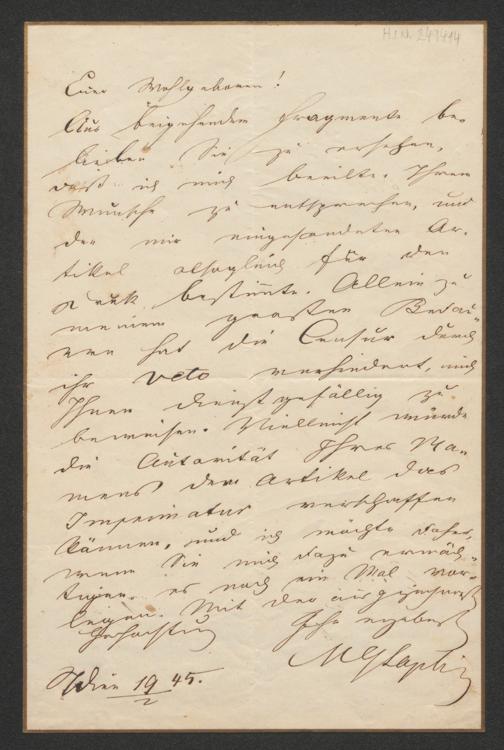 H.I.N. 249414
Euer Wohlgeboren!
Aus beigehendem Fragmente be-
lieben Sie zu ersehen,
daß ich mich beeilte, Ihrem
Wunsche zu entsprechen, und
den mir eingesandten Ar-
tikel alsogleich für den
Druck bestimte. Allein zu
meinem grosten Bedau-
ern hat die Censur durch
ihr Veto verhindert, mich
Ihnen dienstgefällig zu
beweisen. Vielleicht würde
die Autorität Ihres Na-
mens dem Artikel das
Imprimatur verschaffen
können, und ich möchte daher,
wenn Sie mich dazu ermäch-
tigen, es noch ein Mal vor-
legen. Mit der ausgezeichnetst
Hochachtung Ihr ergebenst
MGSaphir
Wien 19/2 45.